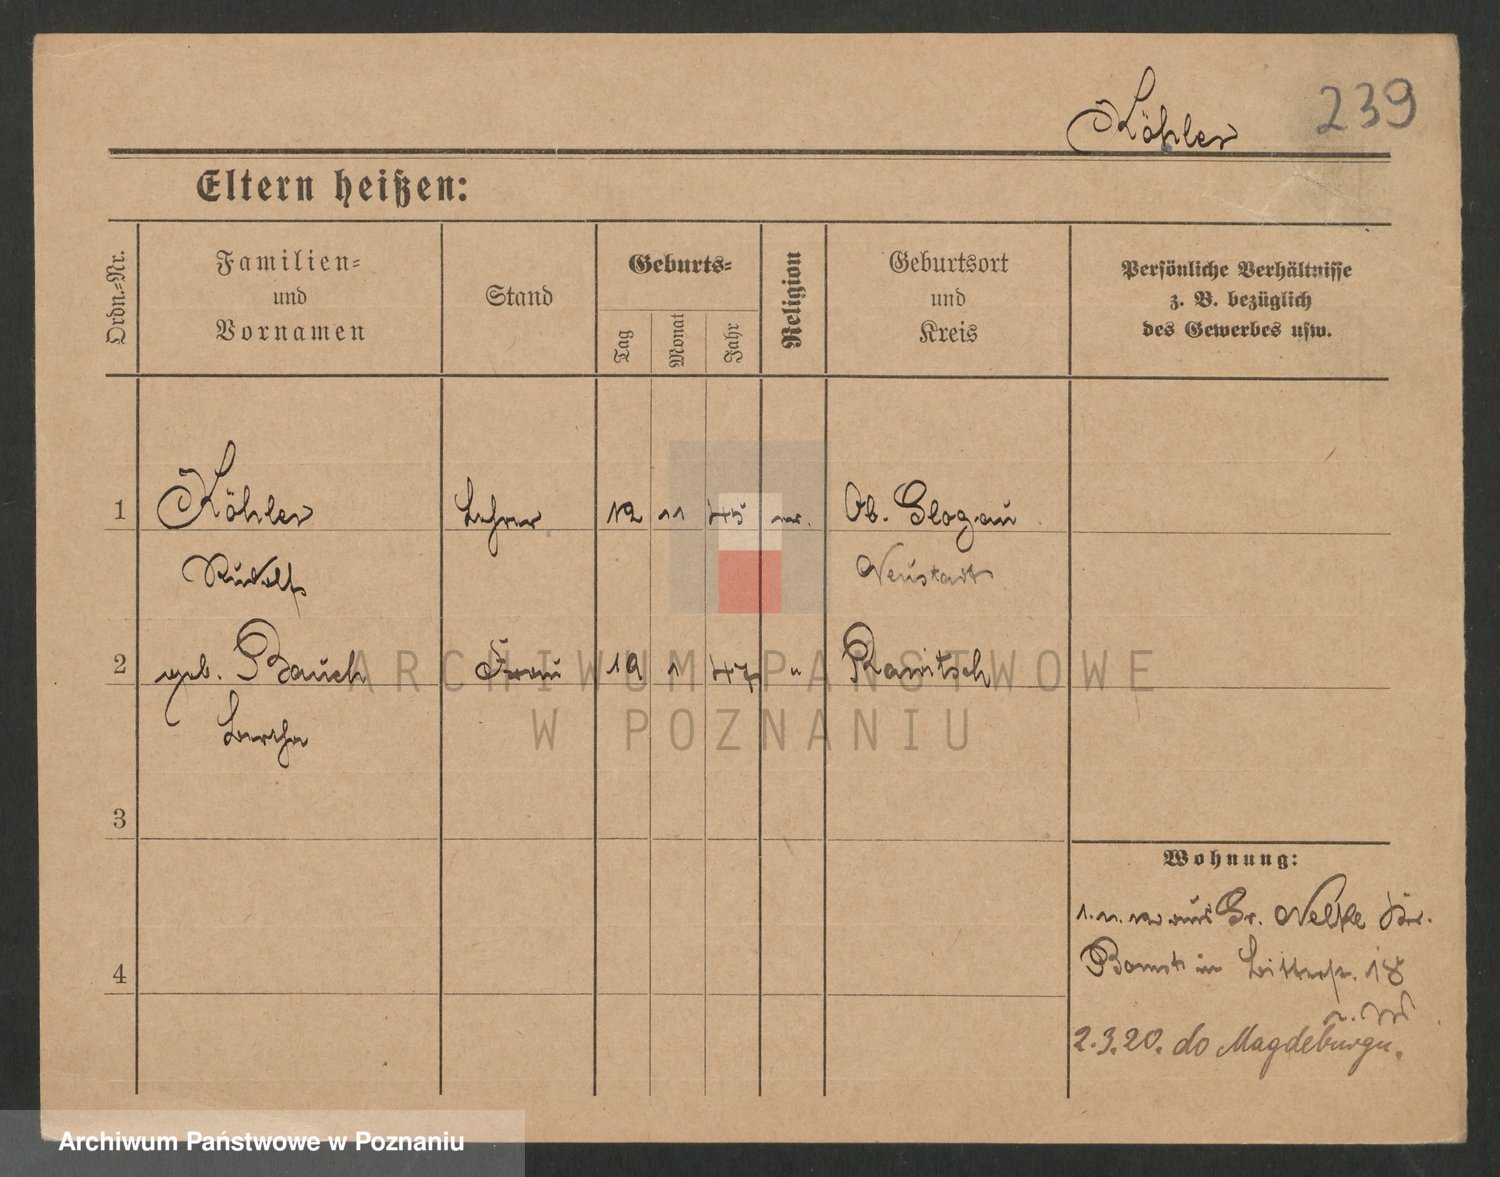 Köhler 239
Eltern heißen:
Ordn.-Nr.
Familien-
und
Vornamen
Stand
Geburts-
Tag
Monat
Jahr
Religion
Geburtsort
und
Kreis
Persönliche Verhältnisse
z. B. bezüglich
des Gewerbes usw.
1 Köhler Lehrer 12 11 45 Ob. Glogau
Rudolf Neustadt
2 geb. Bauch Frau 19 1 47 " Rawitsch
Bertha
3
4
Wohnung:
aus Gr. Nelke Kr.
Bomst in 18
2.3.20. do Magdeburga.
ARCHIWUM PAŃSTWOWE
W POZNANIU
Archiwum Państwowe w Poznaniu